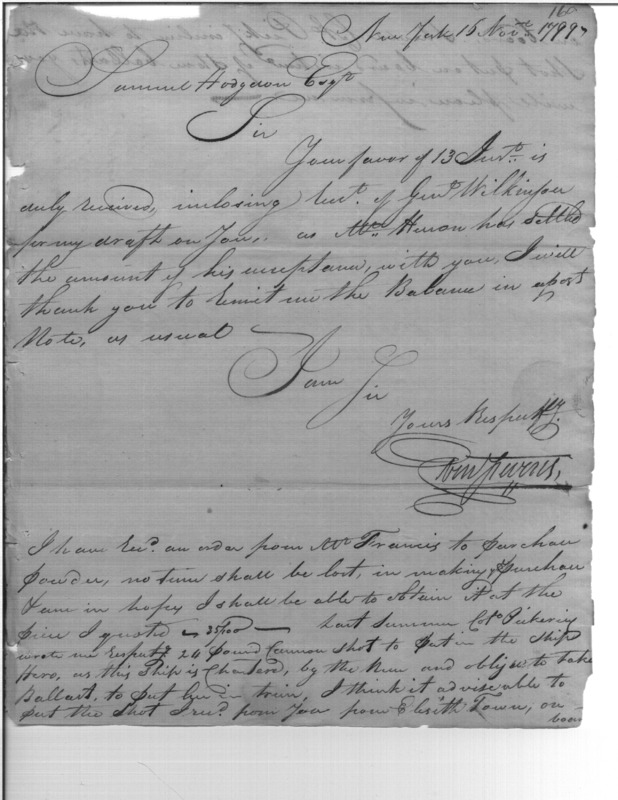 160
New York 15 Novr. 1799
Samuel Hodgdon Esqr.
Sir
Your favor of 13 Inst. is
duly received, inclosing Rect. of Genl. Wilkinson
for my draft on You, as Mr. Heron has settled
the amount of his acceptance, with you, I will
thank you to remit me the Balance in a post
Note, as usual
I am Sir
Yours Respectfy.
I have Recd. an order from Mr. Francis to Purchase
Powder, no time shall be lost, in making Purchase
I am in hopes I shall be able to obtain it at the
price I quoted last Summer Colo. Pickering
wrote me Respectg. 24 Pound Cannon shot to Put in the Ship
Hero, as this Ship is Charterd, by the Run and oblige to take
Ballast, to Put in town, I think it adviseable to
Put the Shot I recd. from You from Elisith Town, on
board